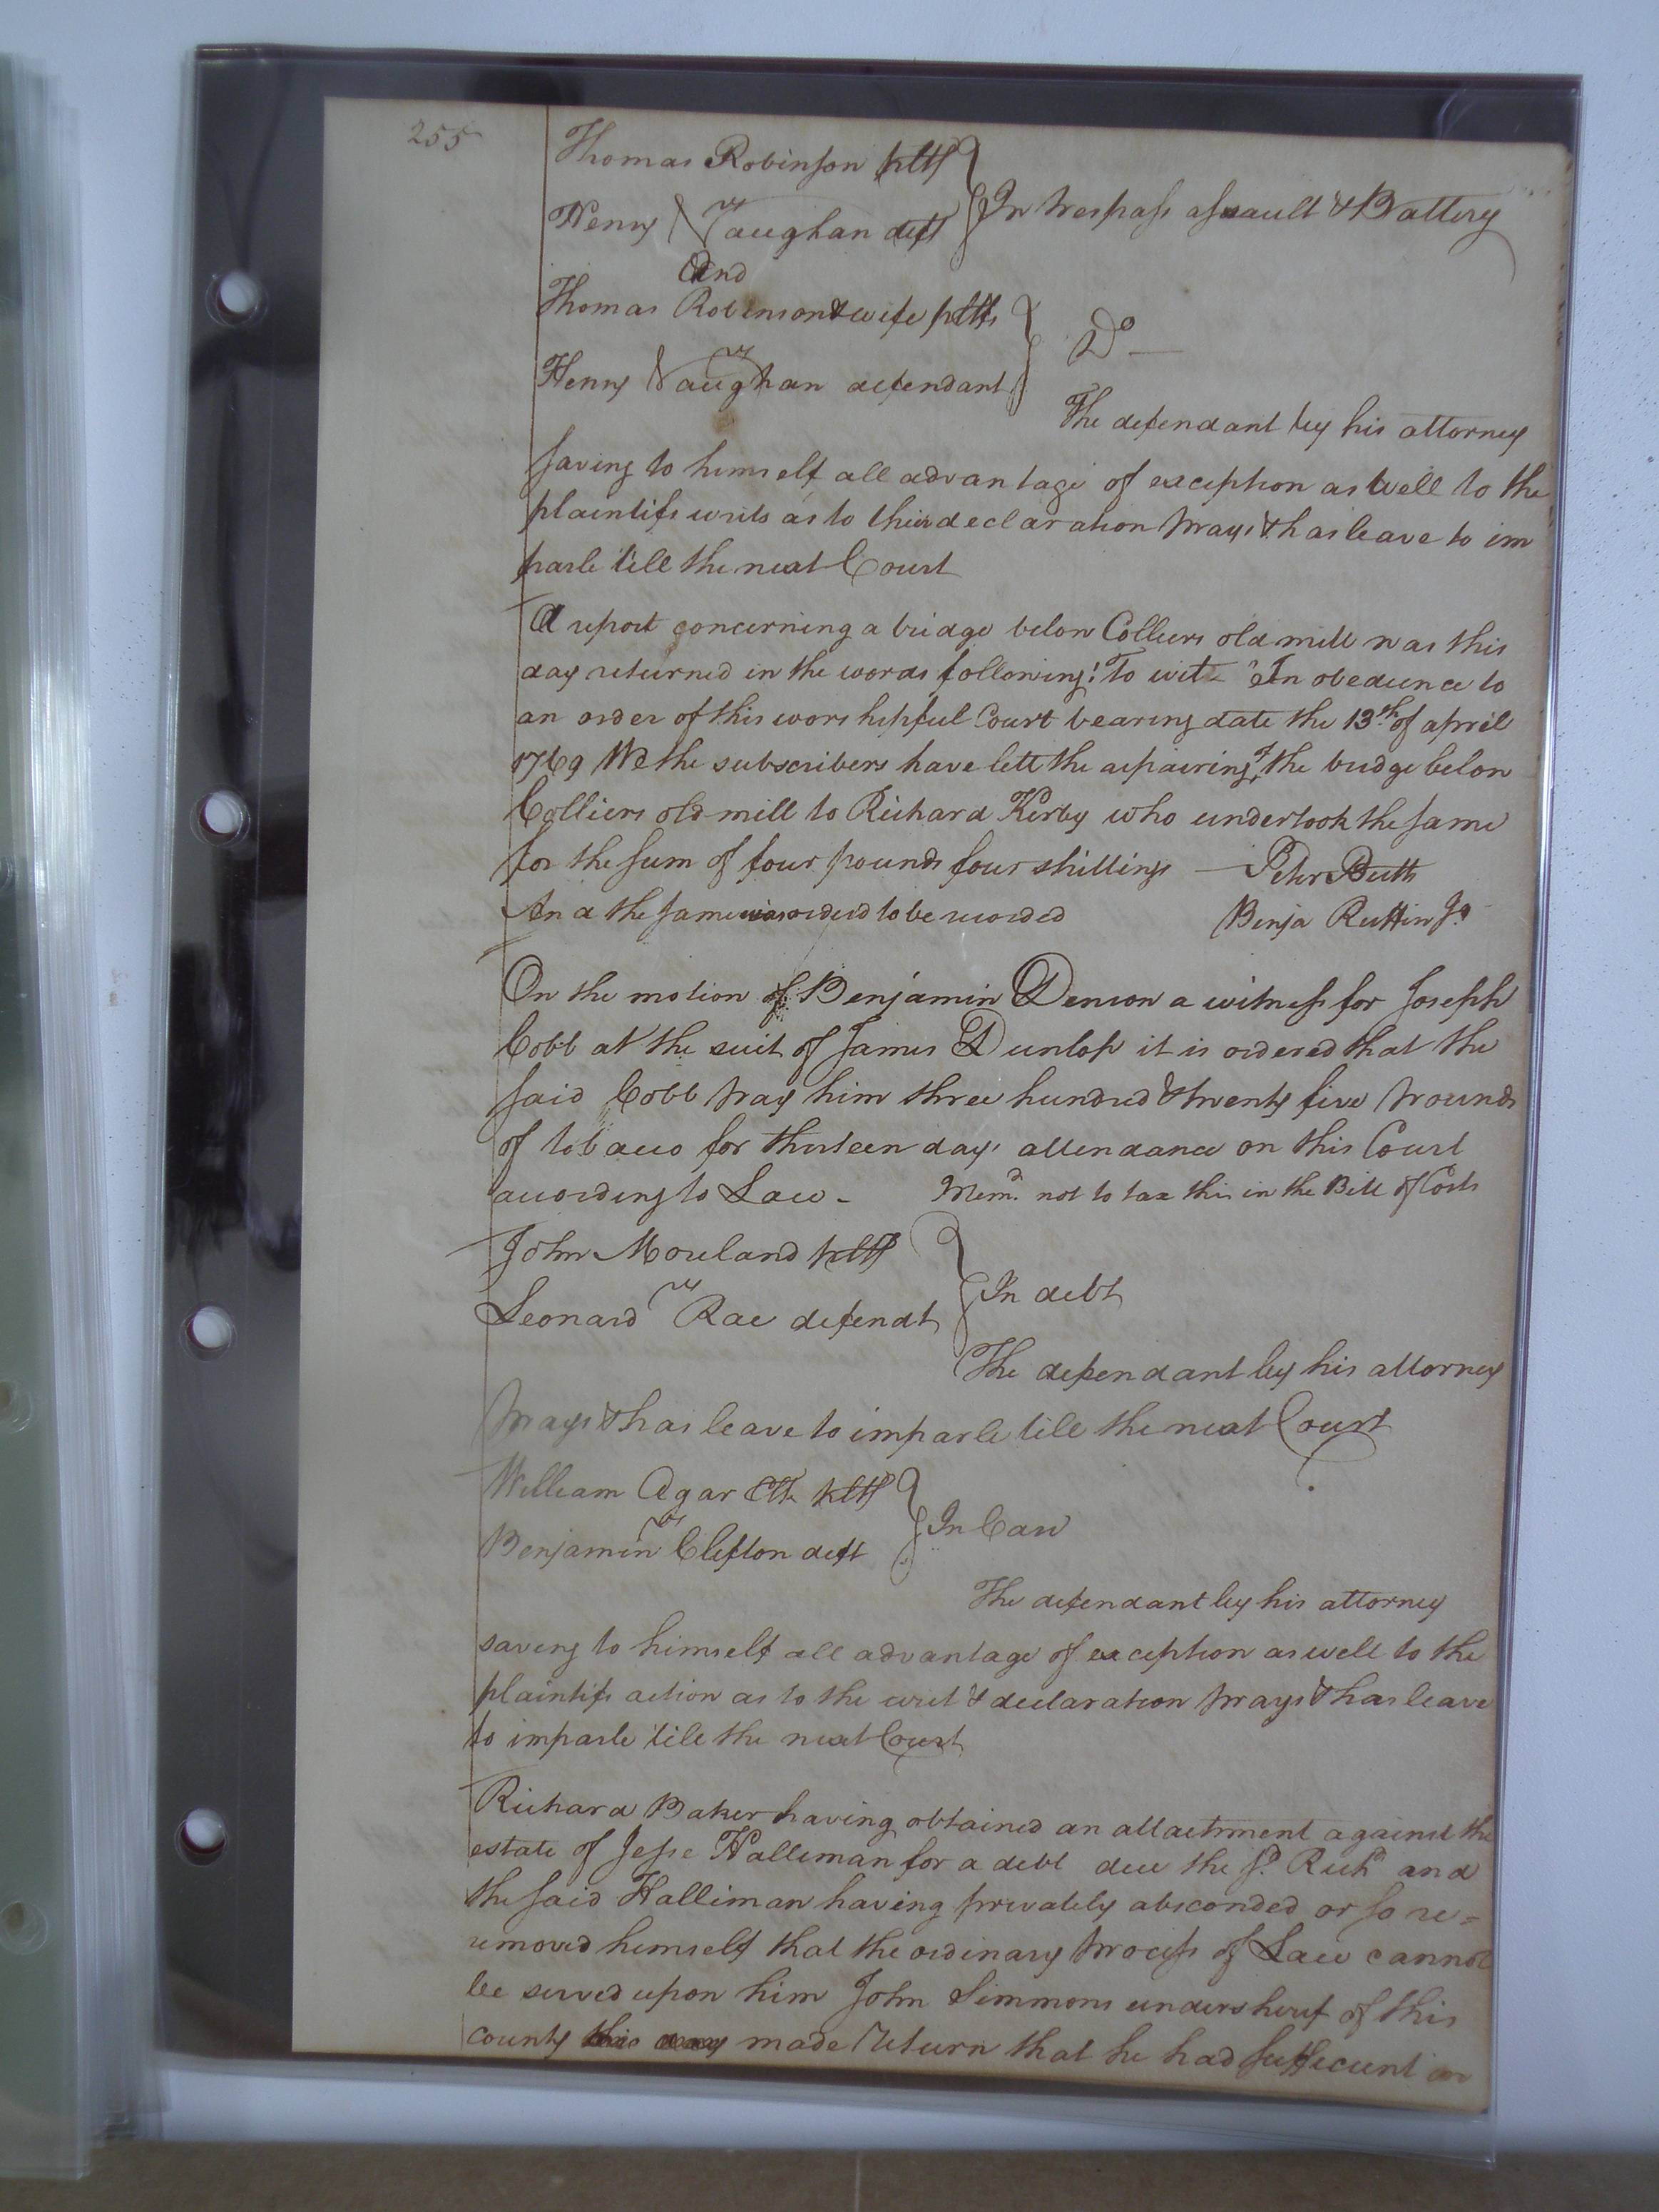 255
Thomas Robinson pltf
vs
Henry Vaughan deft
In trespass assault & Battery
And
Thomas Robinson & wife pltfs
vs
Henry Vaughan defendant
Do
The defendant by his attorney
saving to himself all advantage of exception as well to the
plaintifs writs as to their declaration prays & has leave to im
parle till the next Court
A report concerning a bridge below Colliers old mill was this
day returned in the words following: To wit "In obedience to
an order of this worshipful Court bearing date the 13th of april
1769 We the subscribers have lett the repairing of the bridge below
Colliers old mill to Richard Kerby who undertook the same
for the sum of four pounds four shillings Peter Butts
And the same was orderd to be recorded Benja Ruffin Jr
On the motion of Benjamin Denson a witness for Joseph
Cobb at the suit of James Dunlop it is ordered that the
said Cobb pay him three hundred & twenty five pounds
of tobacco for thirteen days attendance on this Court
according to Law - Memd. not to tax this in the Bill of Costs
John Mouland pltf
vs
Leonard Rae defendt
In debt
The defendant by his attorney
prays & has leave to imparle till the next Court
William Agar pltf
vs
Benjamin Clifton deft
In Case
The defendant by his attorney
saving to himself all advantage of exception as well to the
plaintifs action as to the writ & declaration prays & has leave
to imparle till the next Court
Richard Baker having obtained an attachment against the
estate of Jesse Halliman for a debt due the sd. Richd and
the said Halliman having privately absconded or so re=
removed himself that the ordinary process of Law cannot
be served upon him John Simmons undersherif of this
county this day made return that he had sufficient in